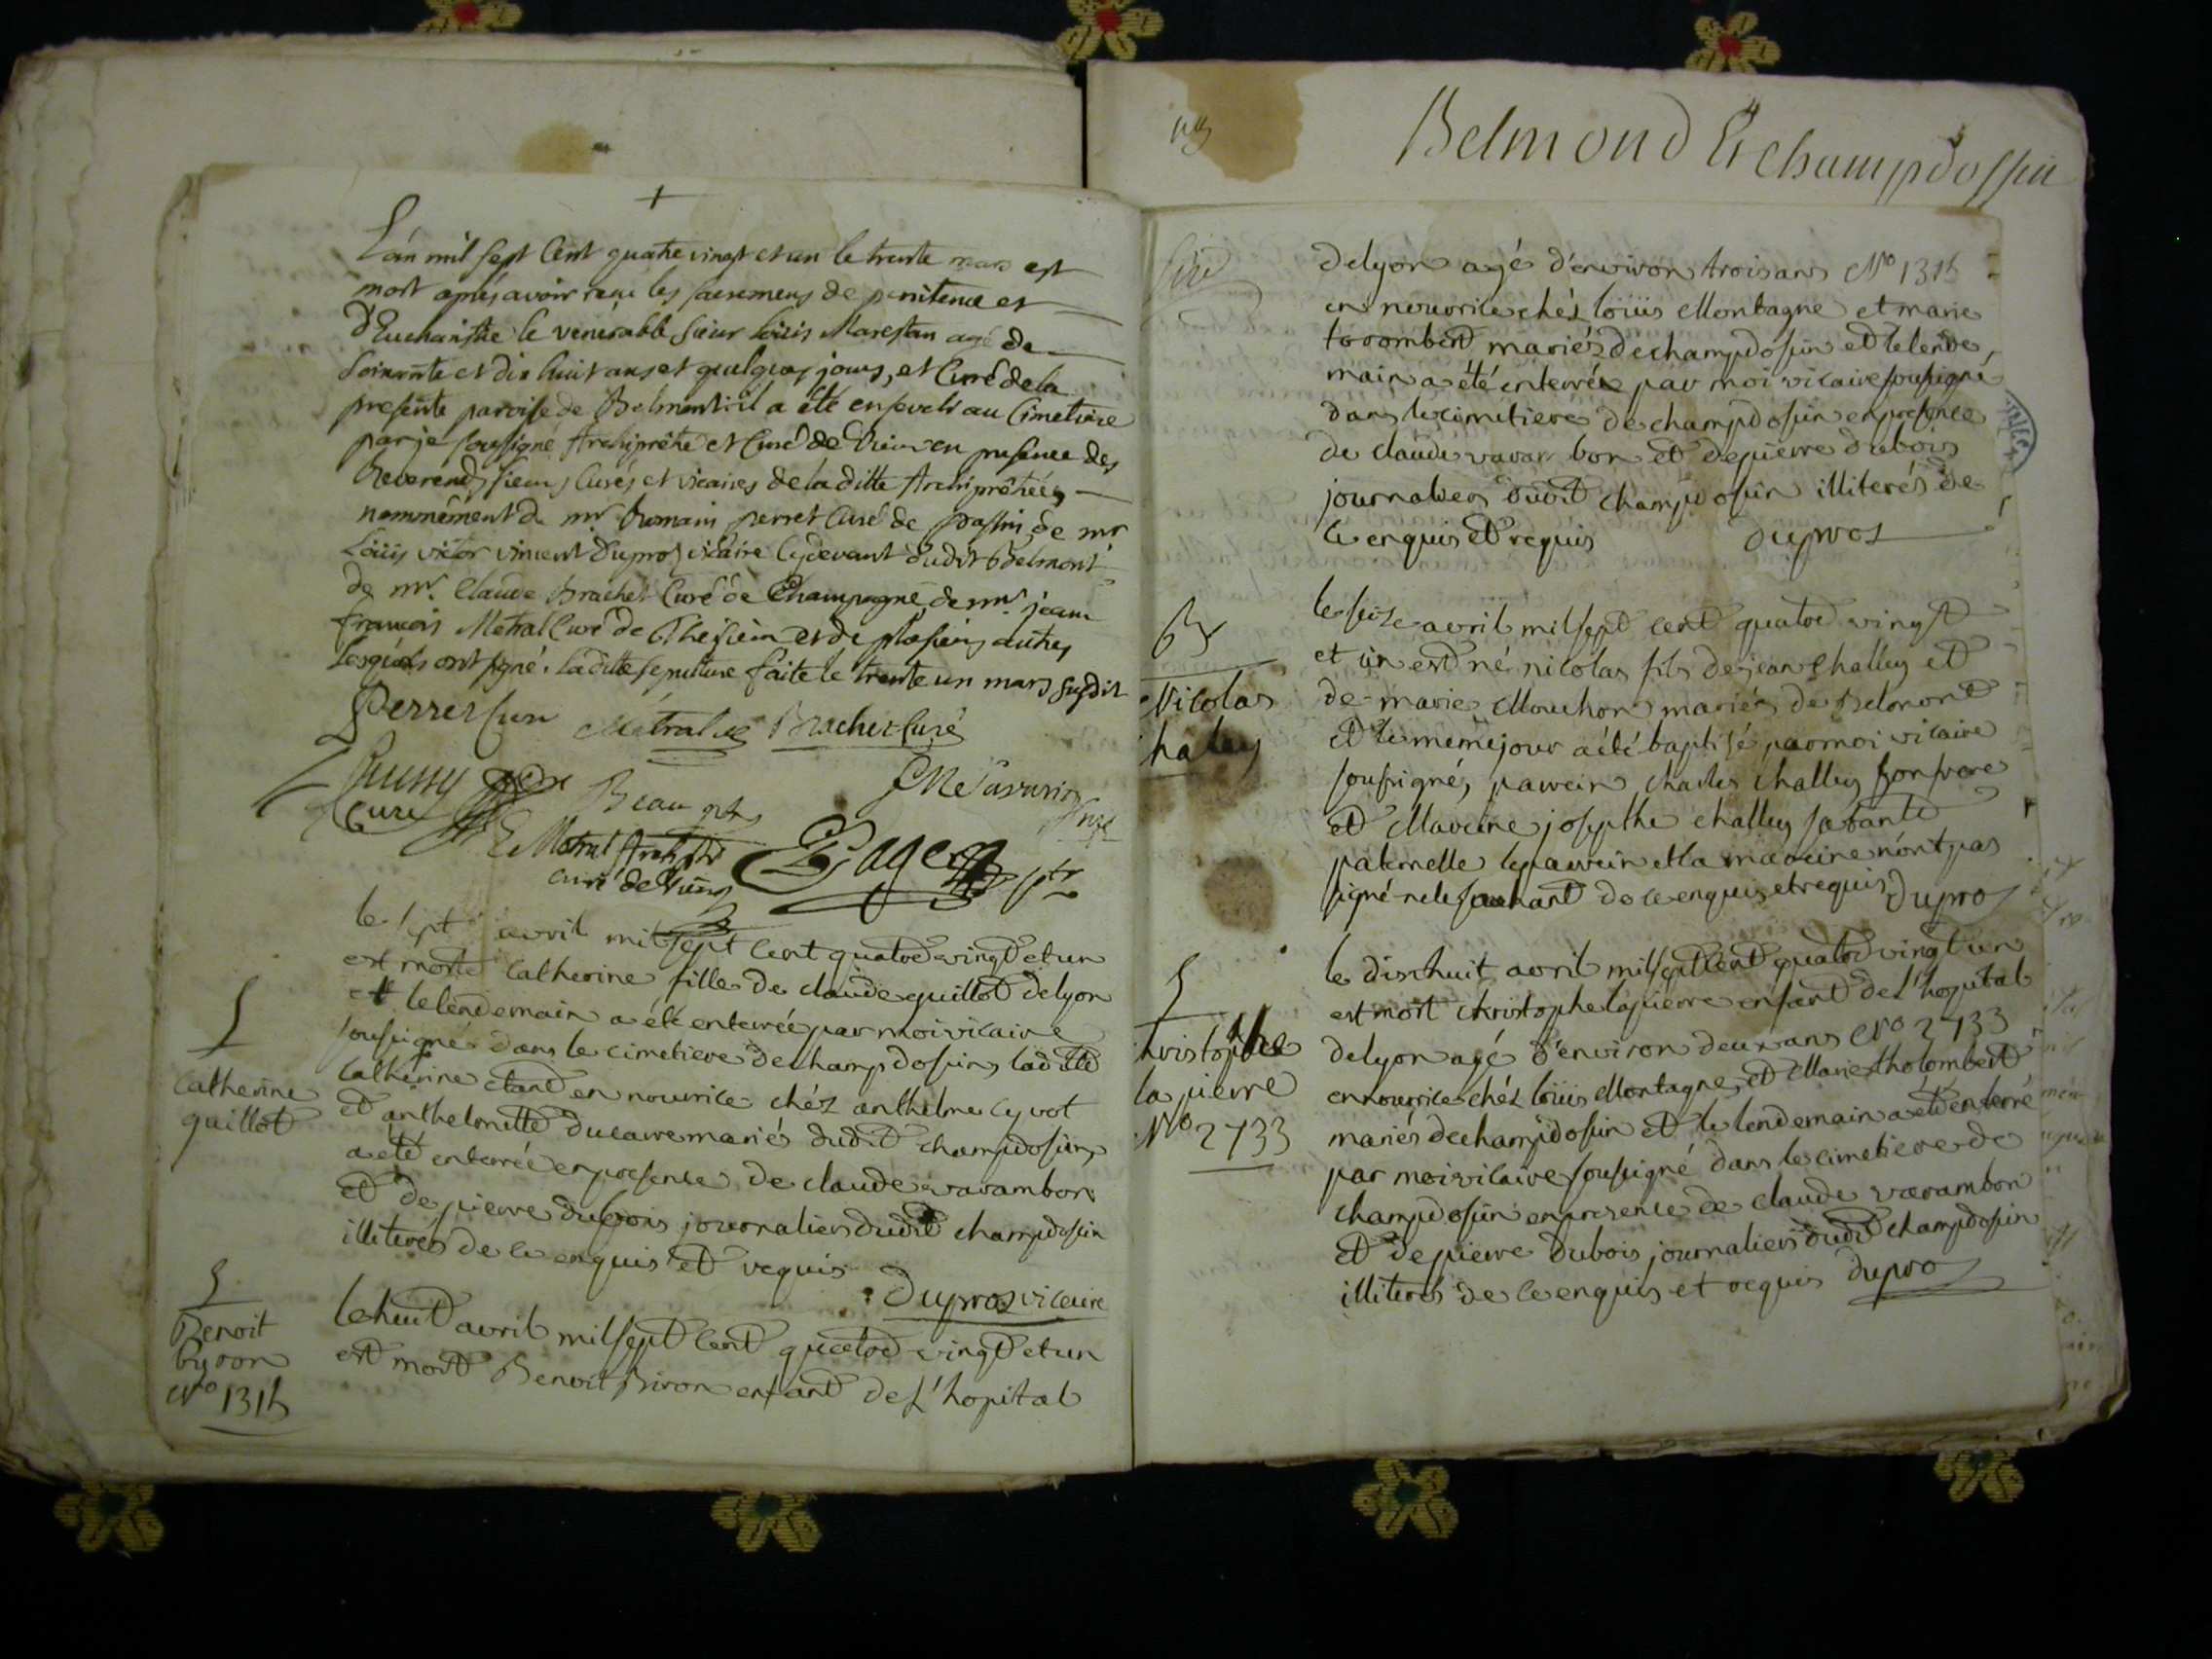 L'an mil sept Cent quatre vingt et un le trente mars est
mort après avoir reçu les sacremens de penitence et
d'Eucharistie le venerable sieur Loüis Marestan agé de
soixante et dix huit ans et quelques jours, et Curé de la
presente paroise de Belmont: il a été enseveli au Cimetiere
par je soussigné Archiprêtre et Curé de Vieu en presence des
Reverends sieurs Curés et vicaires de la ditte Archiprêtrée
nommément de mr Romain perret Curé de passin, de mr
Loüis victor vincent Dupros vicaire Cydevant dudit Belmont
de mr. Claude Brachet Curé de Champagne de mr. jean
francois Metral Curé de Chesieu et de plusieurs autres
lesquels ont signé. la ditte sepulture faite le trente un mars susdit
Perret Curé Métral Brachet Curé
Curé Beau ptre
Metral Archiptre
curé de Vieu Pager ptr
le sept avril mil sept cent quatre vingt et un
est morte Catherine fille de claude guillot de lyon
et le lendemain a été enterrée par moi vicaire
soussigné dans le cimetiere de champdossin, ladite
Catherine
guillot
Catherine etant en nourice chéz anthelme cyvot
et anthelmette ducarre mariés dudit champdossin,
a été enterrée en presence de claude varambon
et de pierre dubois journaliers dudit champdossin
illiterés de ce enquis et requis
Dupros vicaire
Benoit
byron
No 1315
le huit avril mil sept cent quatre vingt et un
est mort Benoit Biron enfant de L'hopital
Belmond Et champdossin
de lyon agé d'environ trois ans No 1315
en nourrice chéz loüis Montagne et marie
trombert mariés de champdossin et le lende
main a été enterrée par moi vicaire soussigné
dans le cimetiere de champdossin en presence
de claude varambon et de pierre dubois
journaliers dudit champdossin illiterés de
ce enquis et requis dupros
B
Nicolas
haley
le seize avril mil sept cent quatre vingt
et un est né nicolas fils de jean Challey et
de marie Mouchon mariés de Belmont
et le meme jour a été baptisé par moi vicaire
soussigné, parrein charles challey son frere
et Mareine josephe challey sa tante
paternelle le parrein et la mareine n'ont pas
signé ne le sachant de ce enquis et requis Dupros
hristophe
la pierre
No 2733
le dix huit avril mil sept cent quatre vingt un
est mort christophe lapierre enfant de l'hopital
de lyon agé d'environ deux ans No 2733
en nourrice chéz loüis Montagne, et Marie tholombert
mariés de champdossin et le lendemain a été enterré
par moi vicaire soussigné dans le cimetiere de
champdossin en presence de claude varambon
et de pierre dubois journaliers dudit champdossin
illiterés de ce enquis et requis dupros